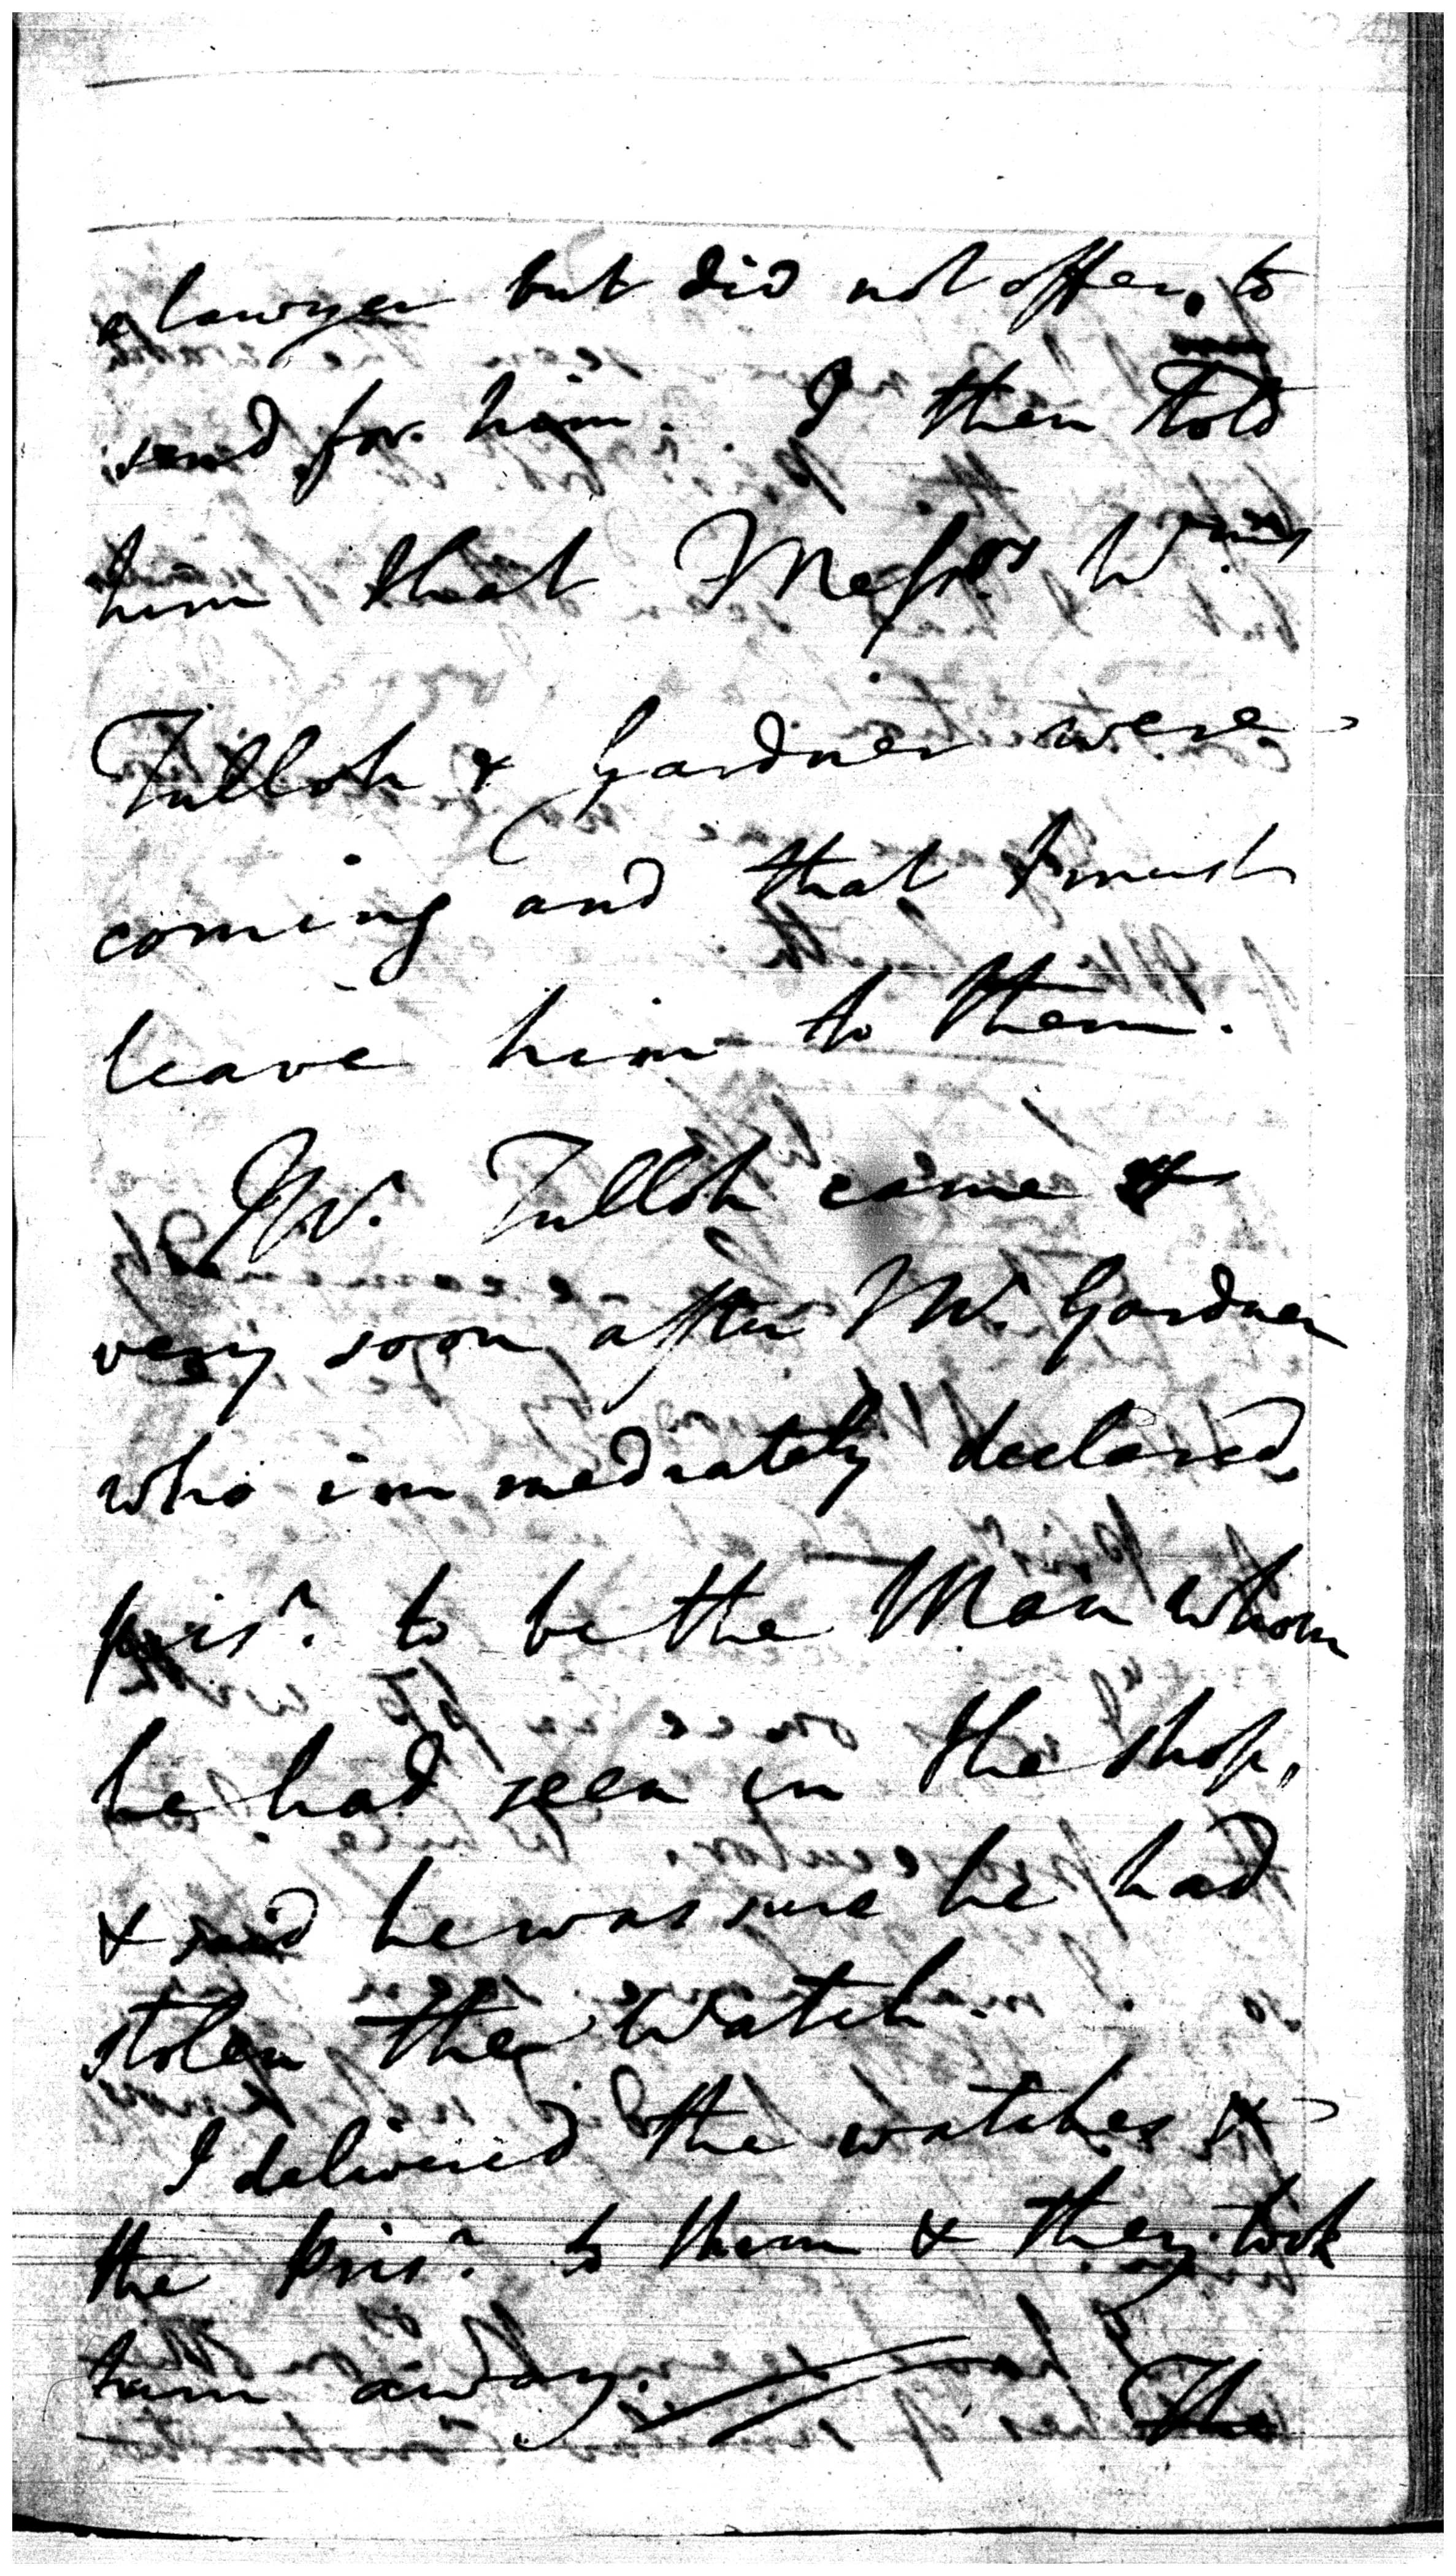 a lawyer but did not offer to
send for him. I then told
him that Messrs. Wms
Tulloh & Gardner were
coming and that I must
leave him to them.
Mr. Tulloh came &
very soon after Mr. Gardner
who immediately declared
prisr. to be the Man whom
he had seen in the shop,
& said he was sure he had
stolen the Watch.
I delivered the watches &
the prisr. to them & they took
him away. The